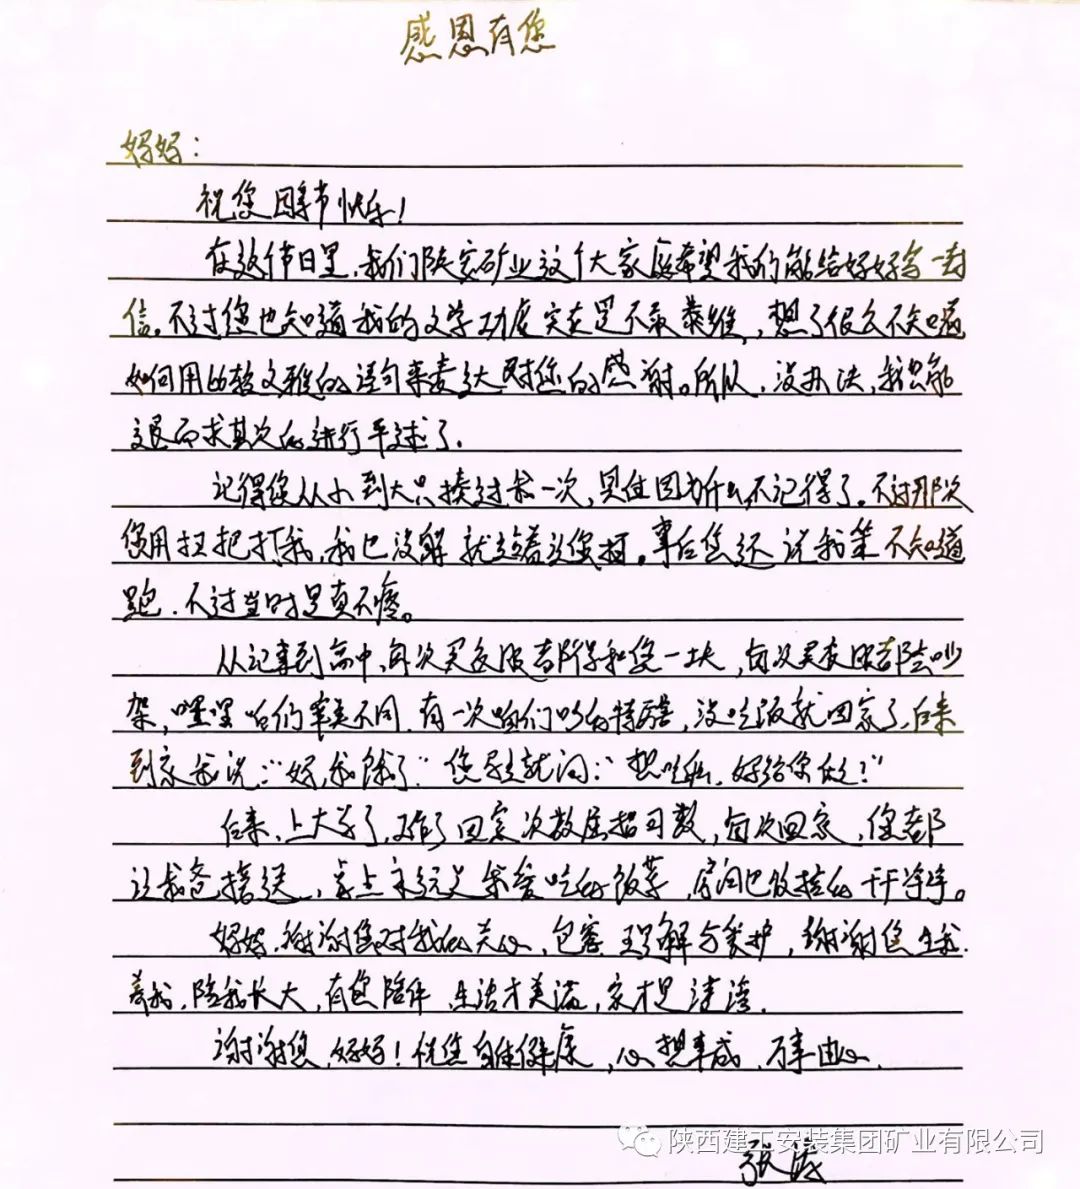 感恩有您
妈妈：
祝您母亲节快乐！
在这个节日里，我们陕安矿业这个大家庭希望我们能给妈妈写一封
信。不过您也知道我的文学功底实在是不敢恭维，想了很久不知道
如何用比较文雅的语句来表达对您的感谢。所以，没办法，我只能
退而求其次的进行平述了。
记得您从小到大只揍过我一次，具体因为什么不记得了。不过那次
您用扫把打我，我也没躲就站着让您打。事后您还说我笨不知道
跑，不过当时是真不疼。
从记事到高中，每次买衣服都得和您一块，每次买衣服都除吵
架，嘿嘿咱们审美不同。有一次咱们吵的特凶，没吃饭就回家了，后来
到家我说：“妈，我饿了”您就问：“想吃啥，妈给你做？”
后来，上大学了，工作了回家次数屈指可数，每次回家，您都
让我爸接送，桌上永远是我爱吃的饭菜，房间也收拾的干干净净。
妈妈，谢谢您对我的关心，包容，理解与爱护，谢谢您生我，
养我，陪我长大，有您陪伴，生活才美满，家才是港湾。
谢谢您，妈妈！祝您身体健康，心想事成，万事由心，
张涛
陕西建工安装集团矿业有限公司